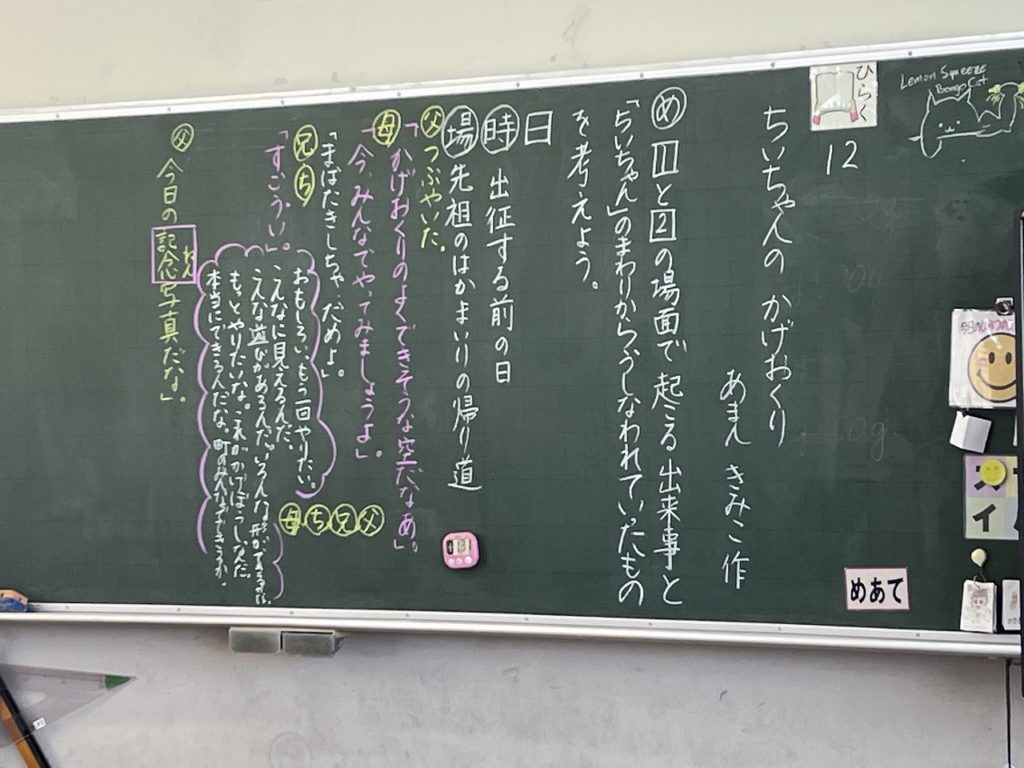 Lemon Squeeze
Bongo Cat
ひらく
12
ちいちゃんの かげおくり
あまん きみこ 作
めあて
め 1と2の場面で 起こる 出来事と
「ちいちゃん」のまわりからうしなわれていったもの
を考えよう。
日
時 出征する前の日
場 先祖のはかまいりの帰り道
父 つぶやいた。
「かげおくりのよくできそうな空だなあ。」
母「今、みんなでやってみましょうよ。」
「まばたきしちゃ、だめよ」。
兄 ち
「すごうい。」
おもしろい、もう一回やりたい。
こんなに見えるんだ。
こんな遊びがあるんだ。いろんな形ができそうだ。
もっとやりたいな。これがかげぼうしなんだ。
本当にできるんだな。町のみんなもできるかな。
母 ち 兄 父
父 今日の記念写真だな」。
ねん